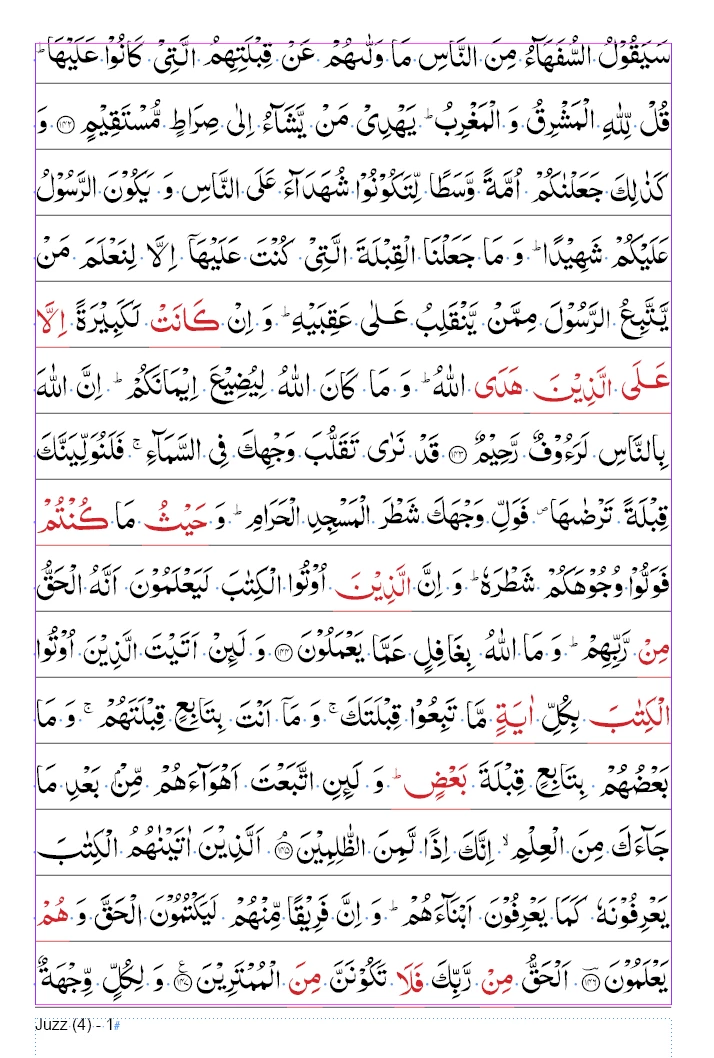 سَیَقُوْلُ السُّفَهَآءُ مِنَ النَّاسِ مَا وَلّٰىهُمْ عَنْ قِبْلَتِهِمُ الَّتِیْ كَانُوْا عَلَیْهَا ؕ
قُلْ لِّلّٰهِ الْمَشْرِقُ وَ الْمَغْرِبُ ؕ یَهْدِیْ مَنْ یَّشَآءُ اِلٰى صِرَاطٍ مُّسْتَقِیْمٍ ﴿۱۴۲﴾ وَ
كَذٰلِكَ جَعَلْنٰكُمْ اُمَّةً وَّسَطًا لِّتَكُوْنُوْا شُهَدَآءَ عَلَى النَّاسِ وَ یَكُوْنَ الرَّسُوْلُ
عَلَیْكُمْ شَهِیْدًا ؕ وَ مَا جَعَلْنَا الْقِبْلَةَ الَّتِیْ كُنْتَ عَلَیْهَاۤ اِلَّا لِنَعْلَمَ مَنْ
یَّتَّبِعُ الرَّسُوْلَ مِمَّنْ یَّنْقَلِبُ عَلٰى عَقِبَیْهِ ؕ وَ اِنْ كَانَتْ لَكَبِیْرَةً اِلَّا
عَلَى الَّذِیْنَ هَدَى اللّٰهُ ؕ وَ مَا كَانَ اللّٰهُ لِیُضِیْعَ اِیْمَانَكُمْ ؕ اِنَّ اللّٰهَ
بِالنَّاسِ لَرَءُوْفٌ رَّحِیْمٌ ﴿۱۴۳﴾ قَدْ نَرٰى تَقَلُّبَ وَجْهِكَ فِی السَّمَآءِ ۚ فَلَنُوَلِّیَنَّكَ
قِبْلَةً تَرْضٰىهَا ۪ فَوَلِّ وَجْهَكَ شَطْرَ الْمَسْجِدِ الْحَرَامِ ؕ وَ حَیْثُ مَا كُنْتُمْ
فَوَلُّوْا وُجُوْهَكُمْ شَطْرَهٗ ؕ وَ اِنَّ الَّذِیْنَ اُوْتُوا الْكِتٰبَ لَیَعْلَمُوْنَ اَنَّهُ الْحَقُّ
مِنْ رَّبِّهِمْ ؕ وَ مَا اللّٰهُ بِغَافِلٍ عَمَّا یَعْمَلُوْنَ ﴿۱۴۴﴾ وَ لَىِٕنْ اَتَیْتَ الَّذِیْنَ اُوْتُوا
الْكِتٰبَ بِكُلِّ اٰیَةٍ مَّا تَبِعُوْا قِبْلَتَكَ ۚ وَ مَاۤ اَنْتَ بِتَابِعٍ قِبْلَتَهُمْ ۚ وَ مَا
بَعْضُهُمْ بِتَابِعٍ قِبْلَةَ بَعْضٍ ؕ وَ لَىِٕنِ اتَّبَعْتَ اَهْوَآءَهُمْ مِّنْۢ بَعْدِ مَا
جَآءَكَ مِنَ الْعِلْمِ ۙ اِنَّكَ اِذًا لَّمِنَ الظّٰلِمِیْنَ ﴿۱۴۵﴾ۘ اَلَّذِیْنَ اٰتَیْنٰهُمُ الْكِتٰبَ
یَعْرِفُوْنَهٗ كَمَا یَعْرِفُوْنَ اَبْنَآءَهُمْ ؕ وَ اِنَّ فَرِیْقًا مِّنْهُمْ لَیَكْتُمُوْنَ الْحَقَّ وَ هُمْ
یَعْلَمُوْنَ ﴿۱۴۶﴾ؔ اَلْحَقُّ مِنْ رَّبِّكَ فَلَا تَكُوْنَنَّ مِنَ الْمُمْتَرِیْنَ ﴿۱۴۷﴾۠ وَ لِكُلٍّ وِّجْهَةٌ
Juzz (4) - 1#